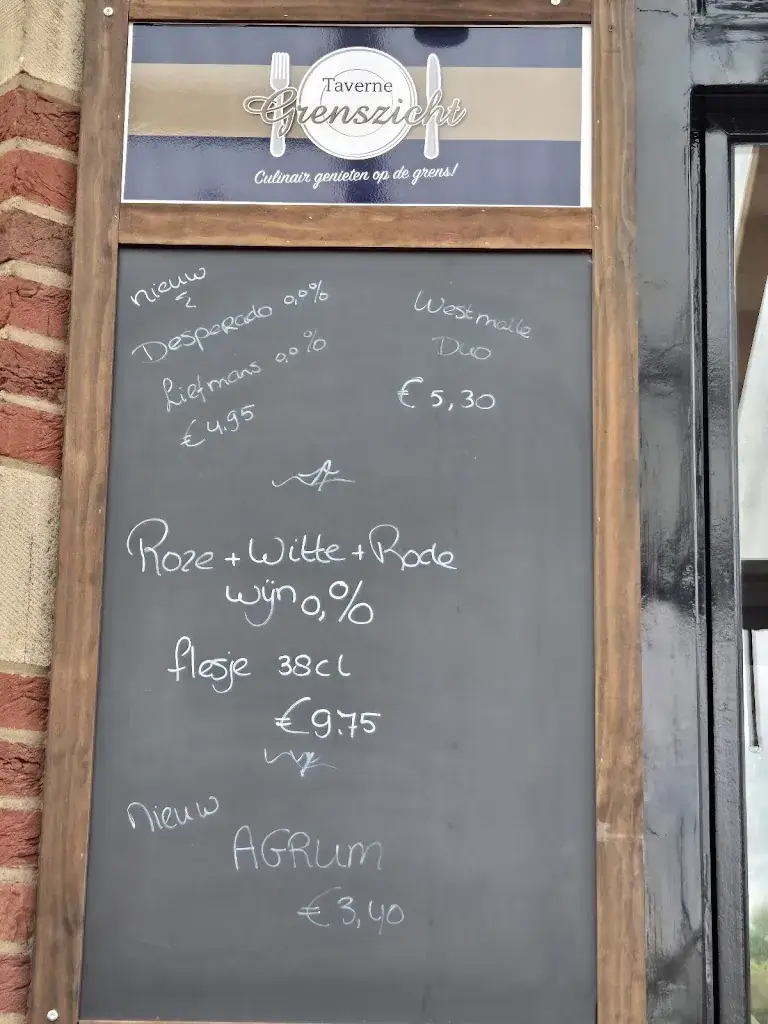 Taverne
Grenszicht
Culinair genieten op de grens!
nieuw
Desperado 0,0%
Liefmans 0,0%
€4.95
Westmalle
Duo
€5,30
Roze + Witte + Rode
wijn 0,%
flesje 38cl
€9.75
nieuw
AGRUM
€3,40